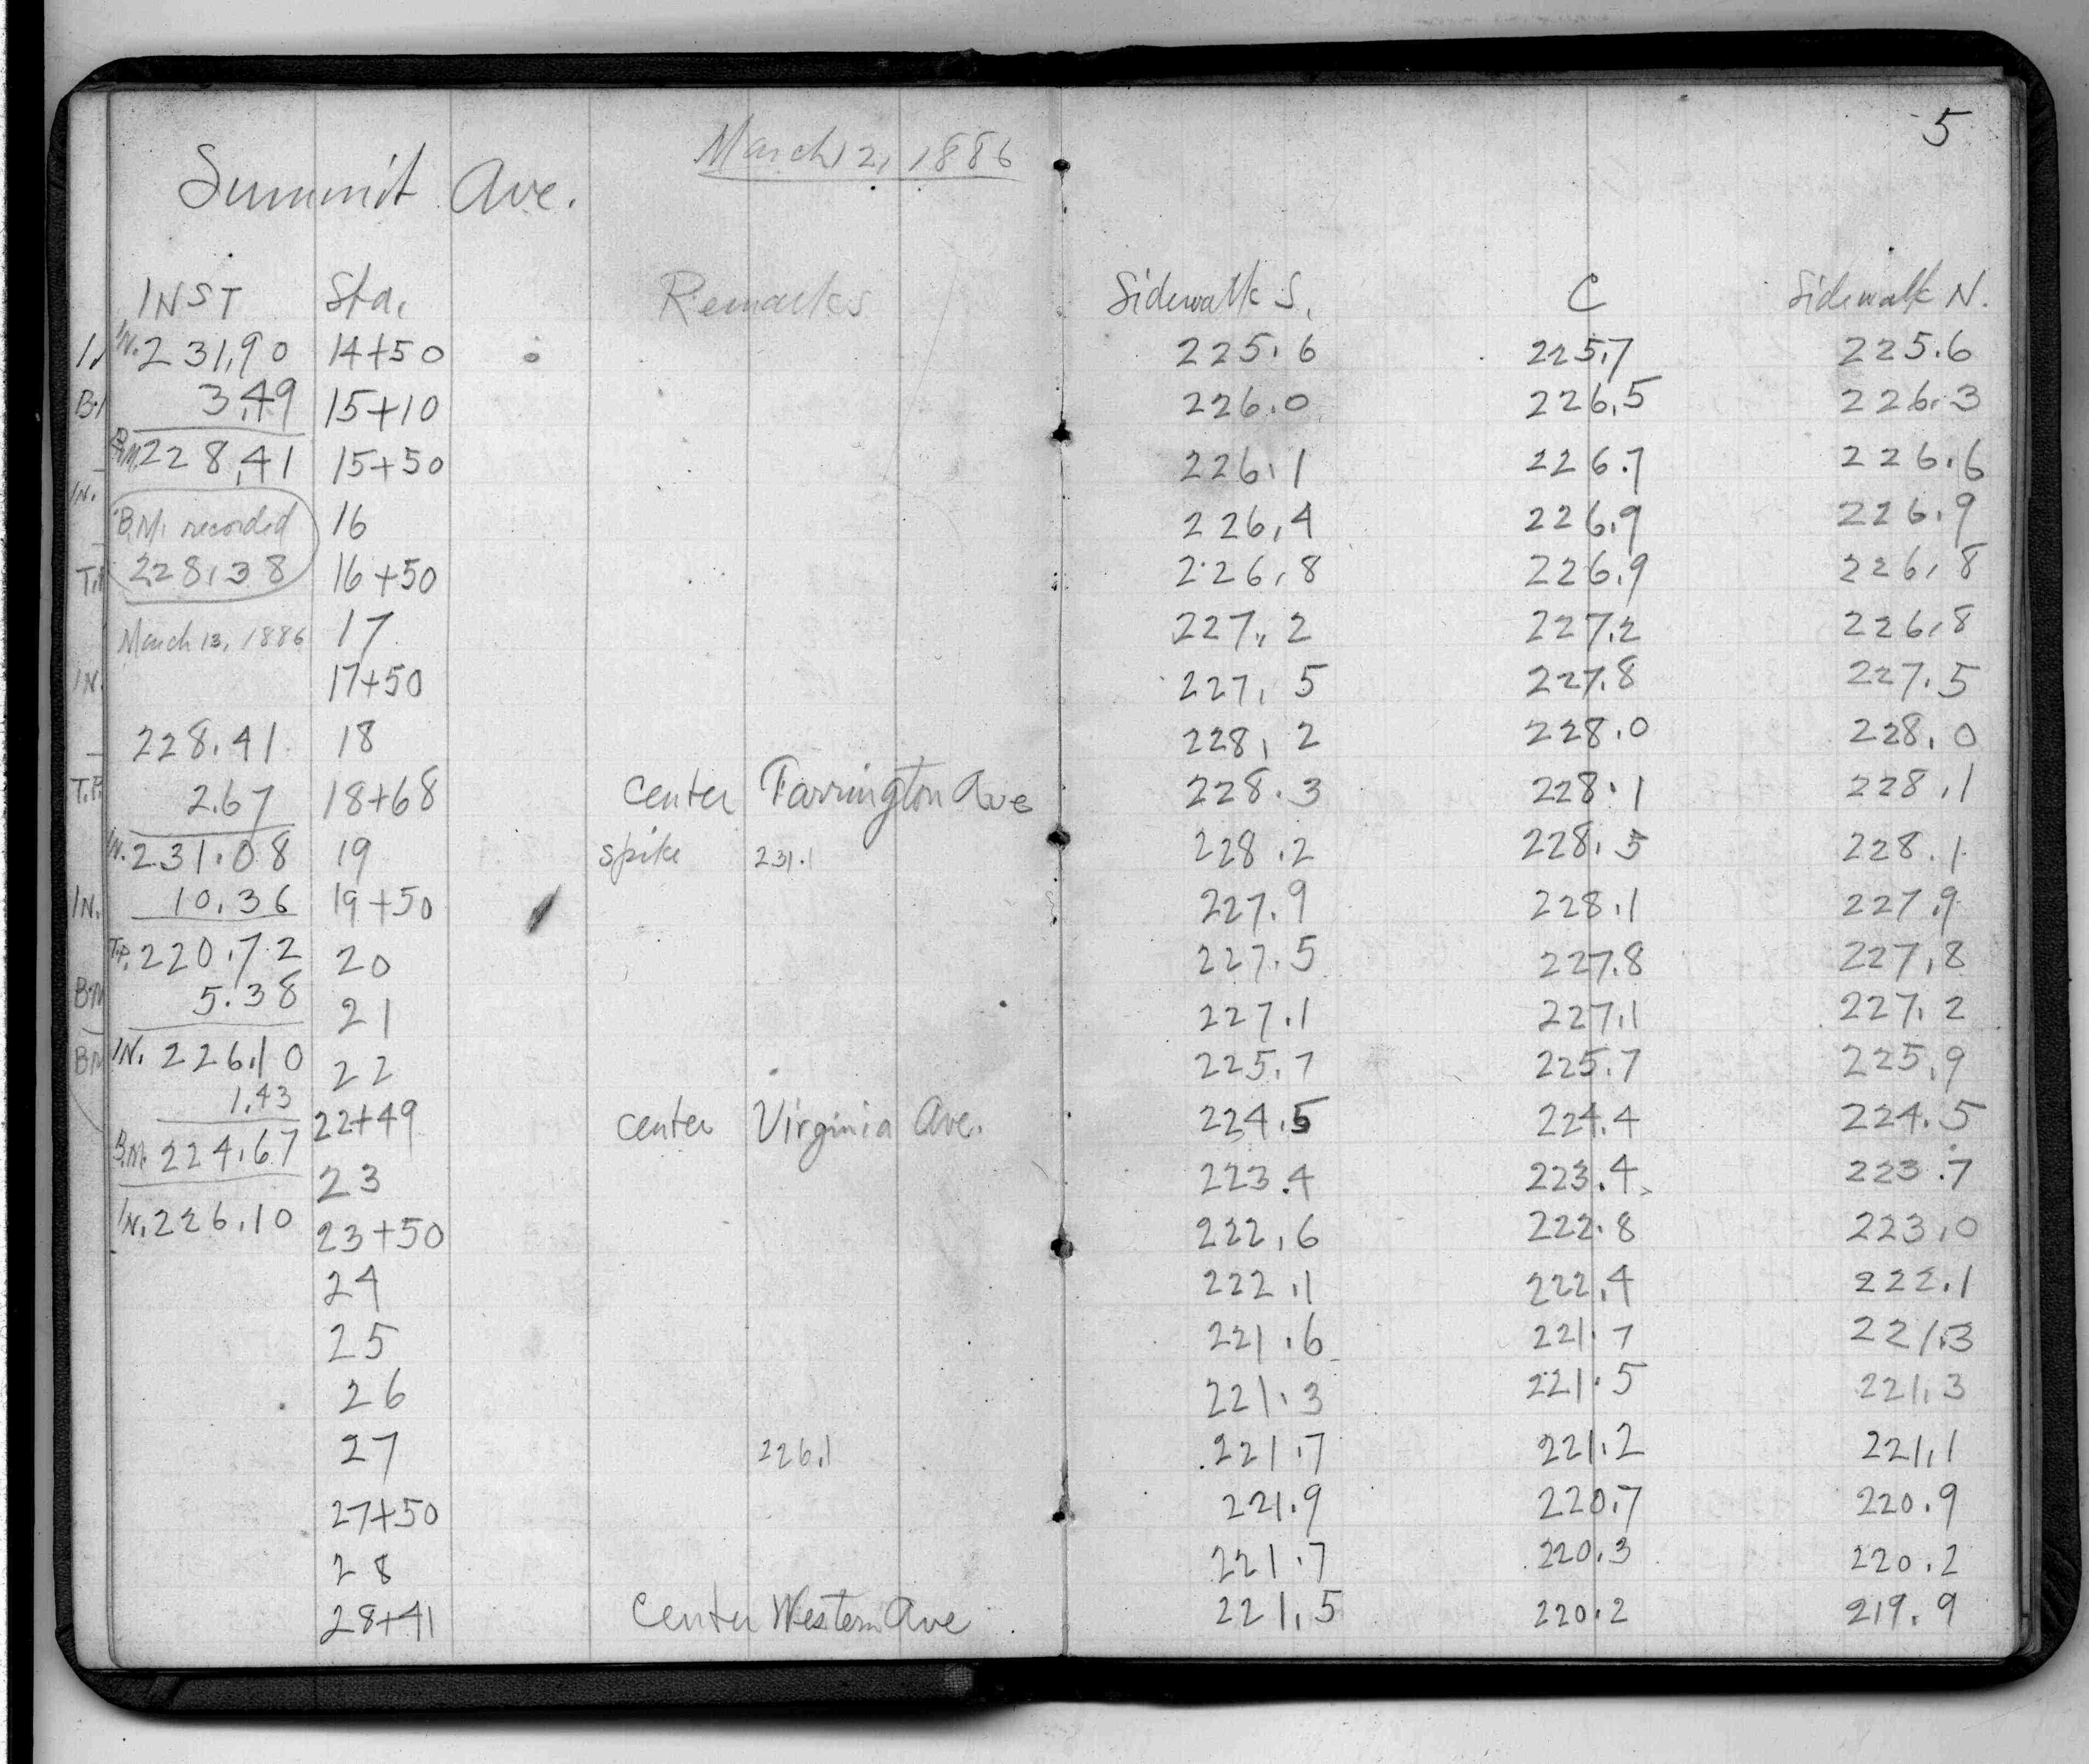 5
March 12, 1886
Summit Ave.
INST Sta. Remarks Sidewalk S. C Sidewalk N.
IN. 231.90 14+50 225.6 225.7 225.6
3.49 15+10 226.0 226.5 226.3
B.M. 228.41 15+50 226.1 226.7 226.6
B.M. recorded 16 226.4 226.9 226.9
228.38 16+50 226.8 226.9 226.8
March 13, 1886 17 227.2 227.2 226.8
17+50 227.5 227.8 227.5
228.41 18 228.2 228.0 228.0
2.67 18+68 center Farrington Ave 228.3 228.1 228.1
IN. 231.08 19 spike 231.1 228.2 228.5 228.1
10.36 19+50 227.9 228.1 227.9
T.P. 220.72 20 227.5 227.8 227.8
5.38 21 227.1 227.1 227.2
IN. 226.10 22 225.7 225.7 225.9
1.43 22+49 center Virginia Ave. 224.5 224.4 224.5
B.M. 224.67 23 223.4 223.4 223.7
IN. 226.10 23+50 222.6 222.8 223.0
24 222.1 222.4 222.1
25 221.6 221.7 221.3
26 221.3 221.5 221.3
27 226.1 221.7 221.2 221.1
27+50 221.9 220.7 220.9
28 221.7 220.3 220.2
28+41 Center Western Ave 221.5 220.2 219.9